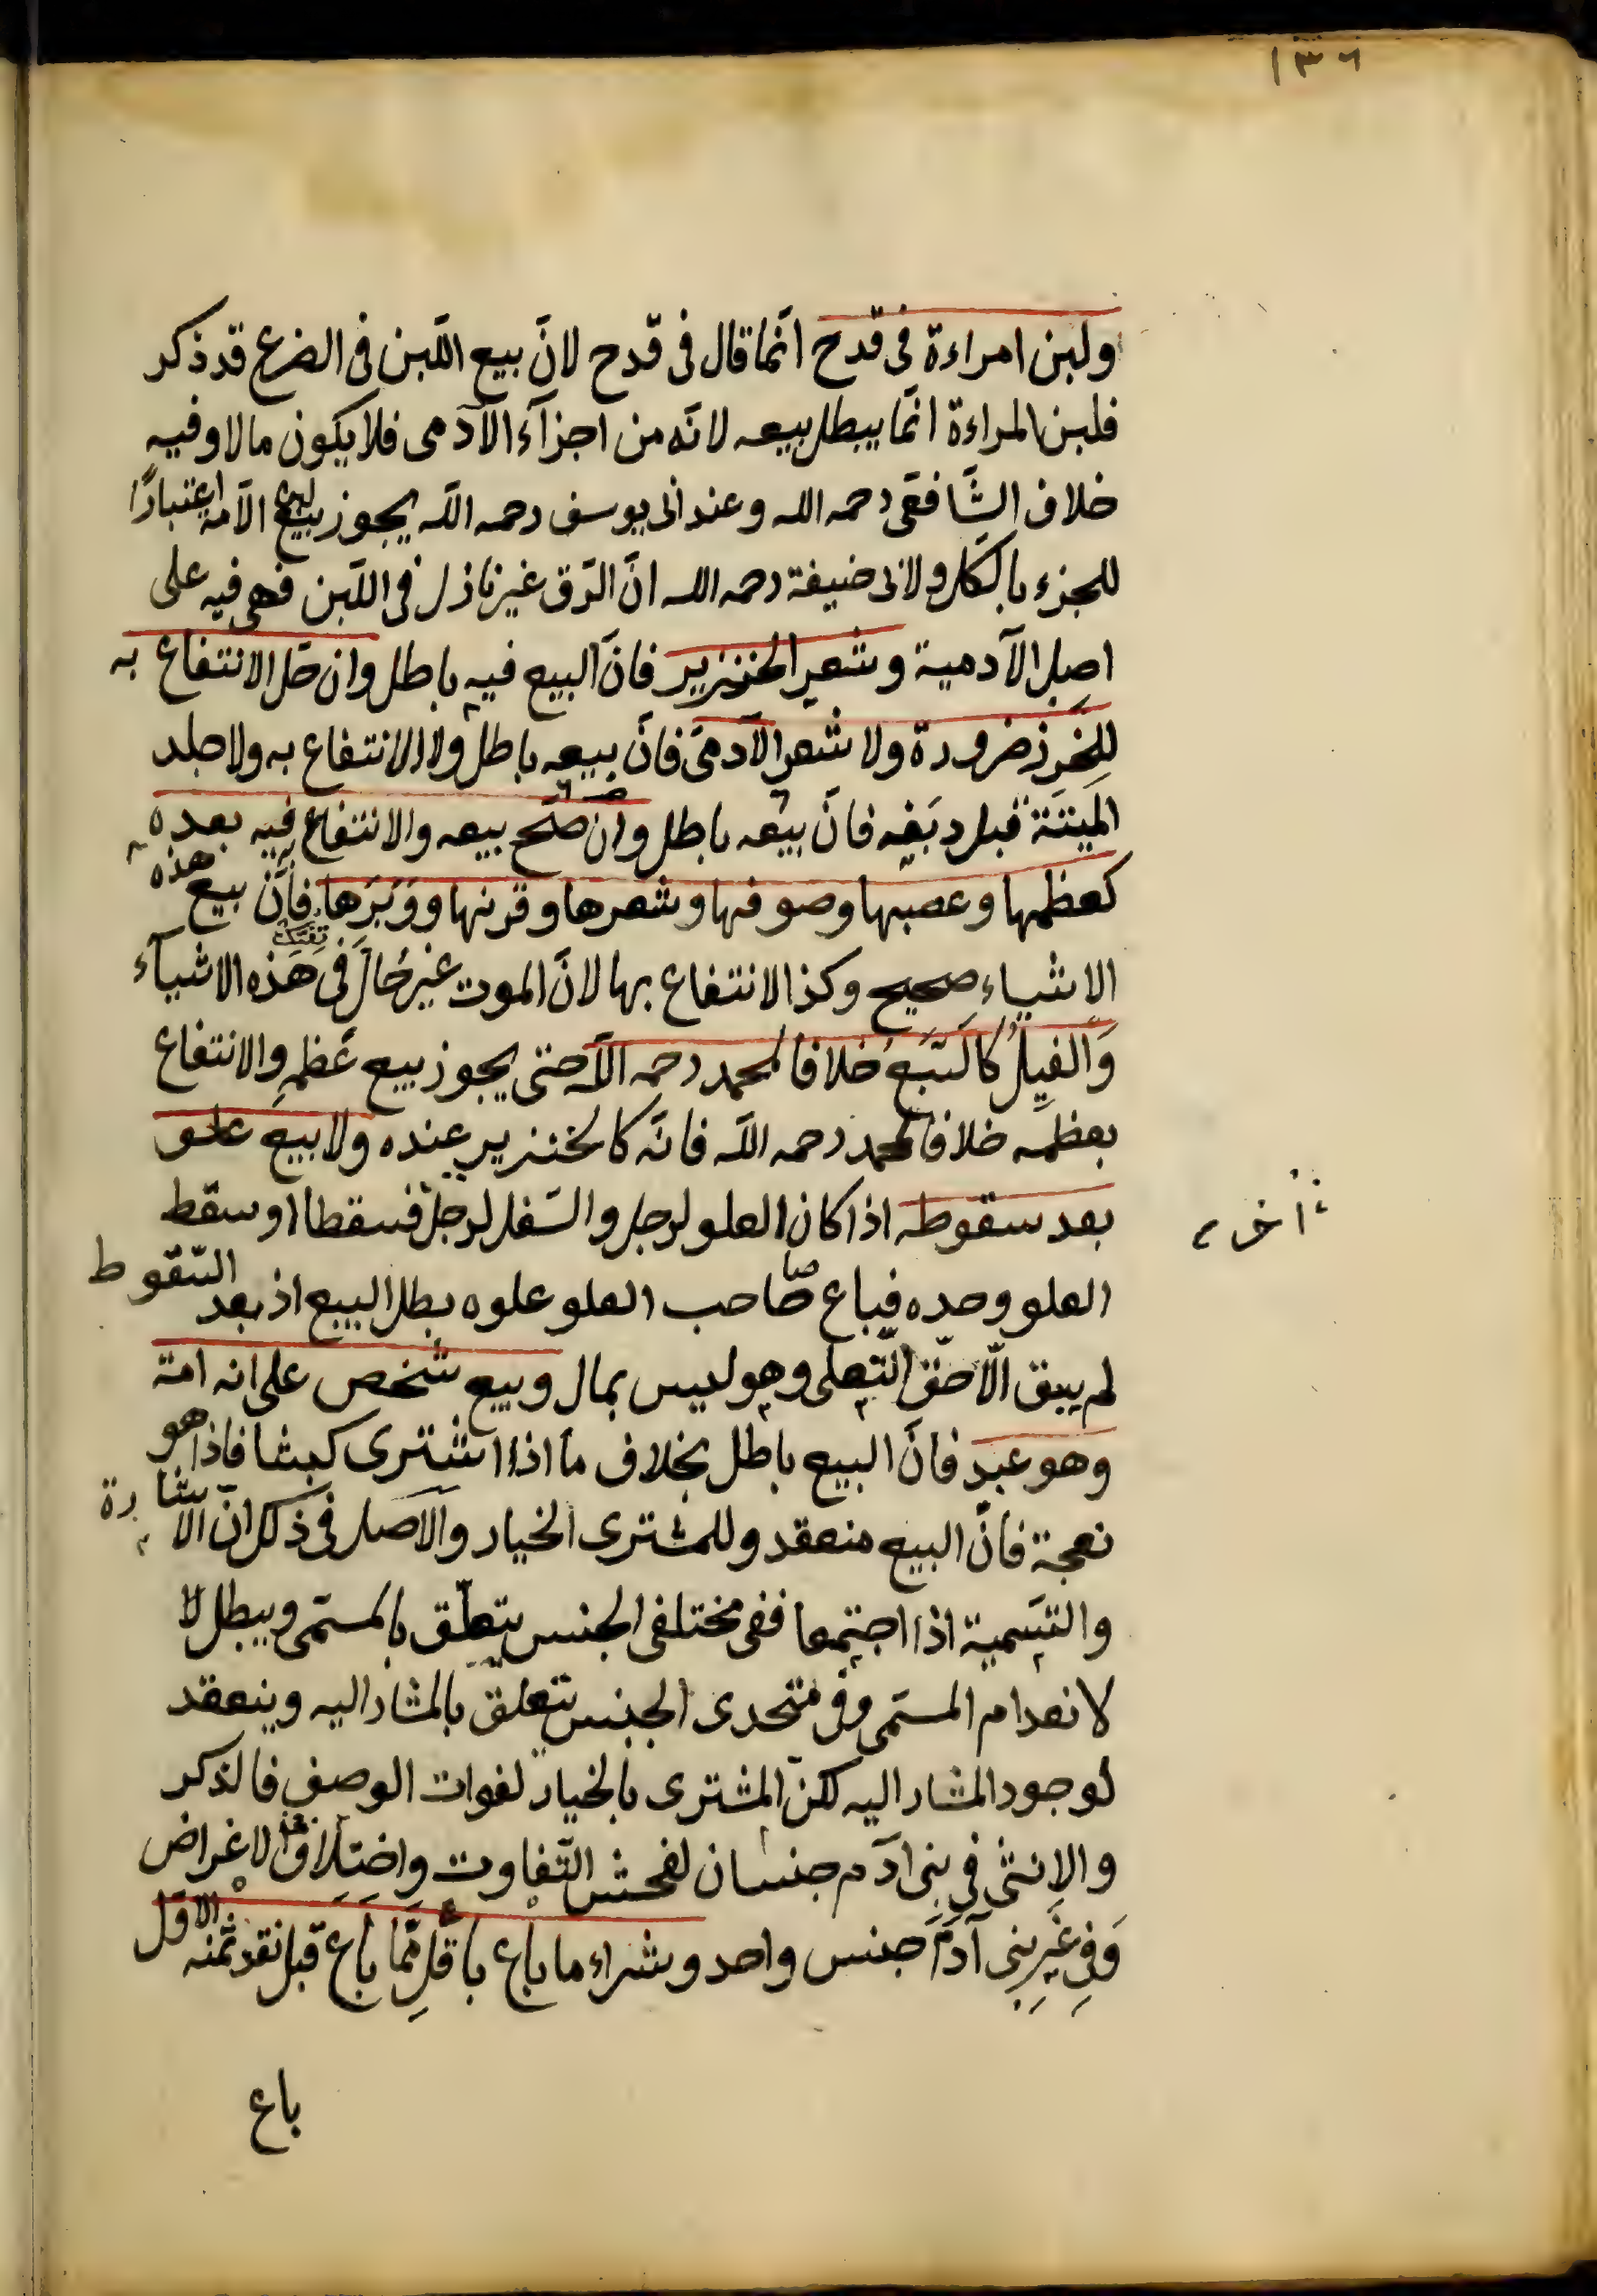 ١٣٦
ولبن امراءة فى قدح انّما قال فى قدح لانّ بيع اللّبن فى الضرع قد ذكر
فلبن المراءة انّما يبطل بيعه لانّه من اجزآء الآدمى فلا يكون مالا وفيه
خلاف الشّافعى رحمه الله وعند ابى يوسف رحمه اللّه يجوز بيع لبن الامة اعتبارًا
للجزء بالكل ولابى حنيفة رحمه الله انّ الرّق غير نازل فى اللّبن فهى فيه على
اصل الآدمية وشعر الخنزير فانّ البيع فيه باطل وان حلّ الانتفاع به
للخرز ضرورة ولا شعر الآدمى فانّ بيعه باطل ولا الانتفاع به ولا جلد
الميتة قبل دبغه فانّ بيعه باطل وان صحّ بيعه والانتفاع فيه بعده
كعظمها وعصبها وصوفها وشعرها وقرنها ووَبَرَها فانّ بيع هذه
الاشياء صحيح وكذا الانتفاع بها لانّ الموت غير حالّ فى هذه الاشيآء
وَالفيلُ كالسّبع خلافا لمحمد رحمه اللّه حتى يجوز بيع عظمِهِ والانتفاع
بعظمه خلافا لمحمد رحمه اللّه فانّه كالخنزير عنده ولا بيع علو
بعد سقوطه اذا كان العلو لرجل والسّفل لرجل فسقطا او سقط
آخر
العلو وحده فباع صاحب العلو علوه بطل البيع اذ بعد السّقوط
لم يبق الّا حقّ التّعلى وهو ليس بمال وبيع شخص على انه امة
وهو عبد فانّ البيع باطل بخلاف ما اذا اشترى كبشا فاذا هو
نعجة فانّ البيع منعقد وللمشترى الخيار والاصل فى ذلك انّ الاشارة
والتّسمية اذا اجتمعا ففى مختلفى الجنس يتعلّق بالمسمّى ويبطل لا
لانعدام المسمّى وفى متحدى الجنس يتعلق بالمشار اليه وينعقد
لوجود المشار اليه لكنّ المشترى بالخيار لفوات الوصف فالذكر
والانثى فى بنى آدم جنسان لفحش التّفاوت واختلاف الاغراض
وَفى غير بنى آدم جنس واحد وشراء ما باع باقلّ ممّا باع قبل نقد ثمنه الاوّل
باع